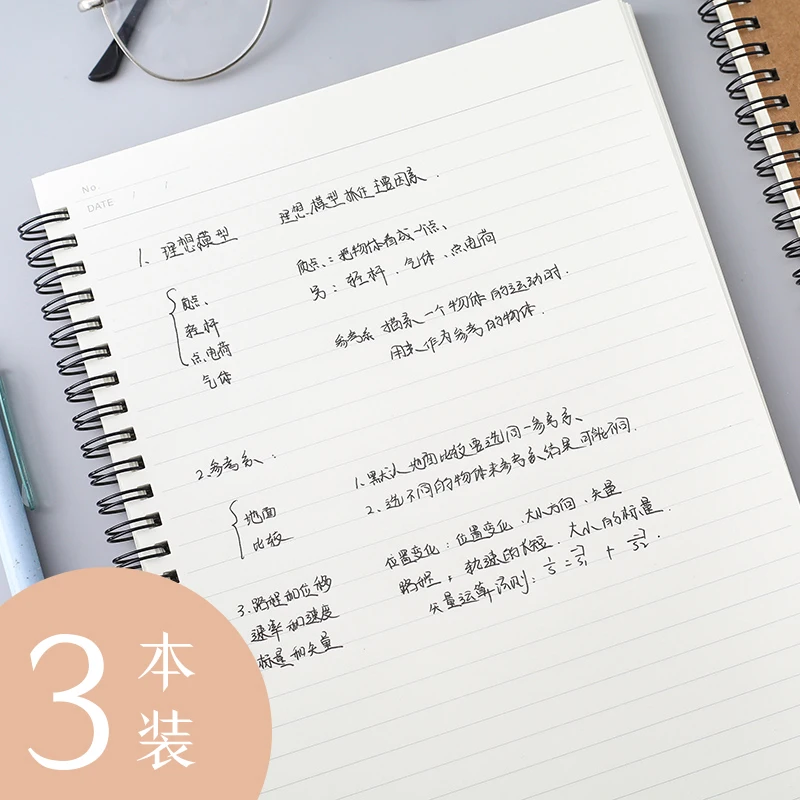 No.
DATE / /
1、理想模型 理想模型抓住主要因素.
质点、
轻杆
点电荷
气体
质点:把物体看成一个点、
另:轻杆、气体、点电荷
参考系 描系一个物体的运动时.
用来作为参考的物体.
2.参考系、:
地面
比较
1、默认地面比较要选同一参考系、
2、选不同的物体来参考系结果可能不同.
3.路程和位移
速率和速度
标量和矢量
位置变化:位置变化、大小方向、矢量
路程, 轨迹的长短.大小的标量.
矢量运算法则:
3本装